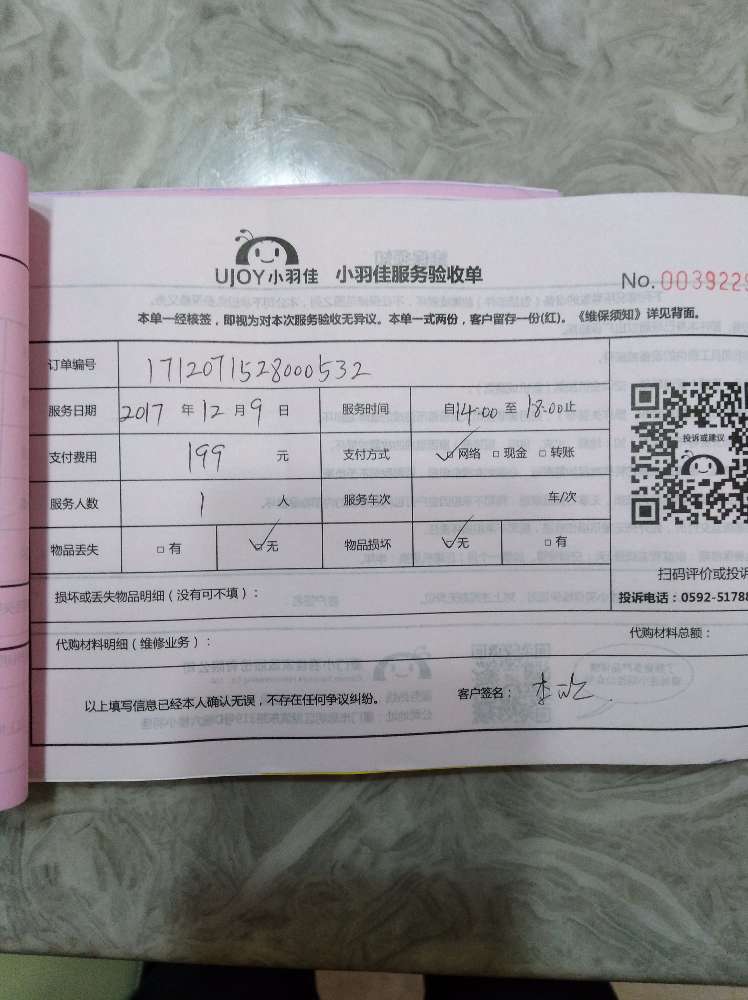 UJOY小羽佳 小羽佳服务验收单
No. 0039229
本单一经核签，即视为对本次服务验收无异议。本单一式两份，客户留存一份(红)。《维保须知》详见背面。
订单编号 1712071528000532
服务日期 2017 年 12 月 9 日 服务时间 自14:00 至 18:00止
支付费用 199 元 支付方式 ✓网络 □ 现金 □ 转账
服务人数 1 人 服务车次 车/次
物品丢失 □ 有 ✓无 物品损坏 ✓无 □ 有
投诉或建议
扫码评价或投诉
损坏或丢失物品明细（没有可不填）：
投诉电话：0592-51788
代购材料明细（维修业务）： 代购材料总额：
以上填写信息已经本人确认无误，不存在任何争议纠纷。 客户签名：